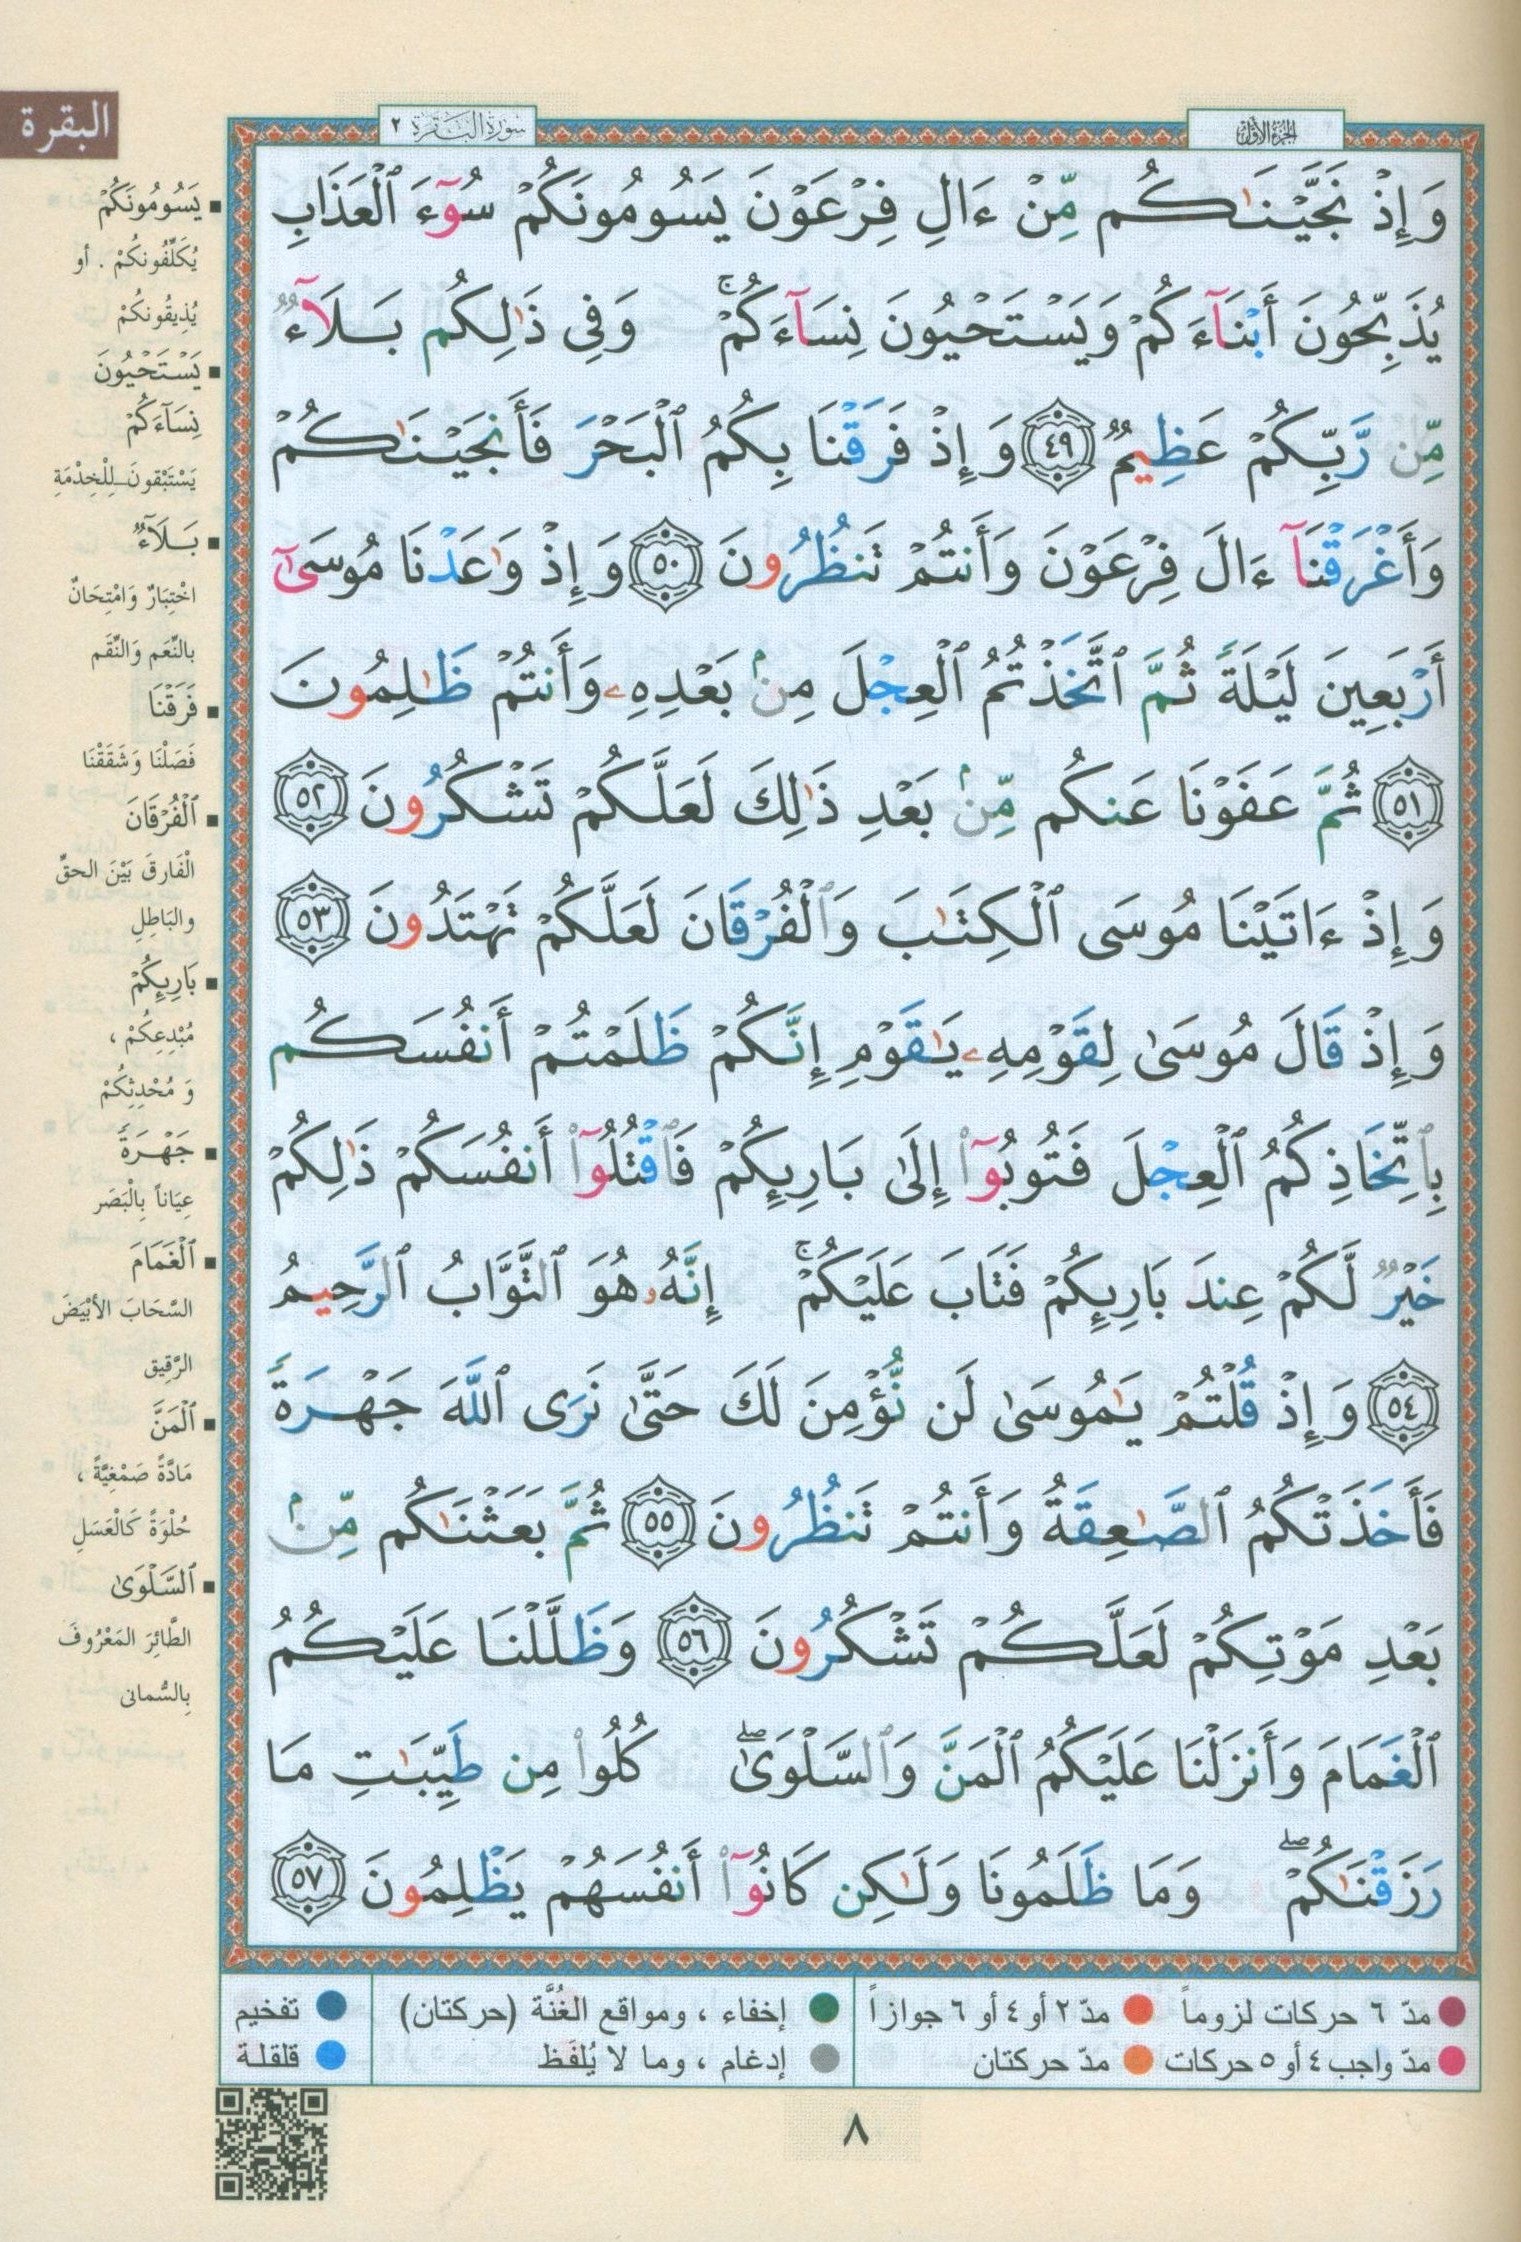 البقرة
سورة البقرة ٢
الجزء الأول
وَإِذْ نَجَّيْنَـٰكُم مِّنْ ءَالِ فِرْعَوْنَ يَسُومُونَكُمْ سُوٓءَ ٱلْعَذَابِ
يُذَبِّحُونَ أَبْنَآءَكُمْ وَيَسْتَحْيُونَ نِسَآءَكُمْ ۚ وَفِى ذَٰلِكُم بَلَآءٌ
مِّن رَّبِّكُمْ عَظِيمٌ ٤٩ وَإِذْ فَرَقْنَا بِكُمُ ٱلْبَحْرَ فَأَنجَيْنَـٰكُمْ
وَأَغْرَقْنَآ ءَالَ فِرْعَوْنَ وَأَنتُمْ تَنظُرُونَ ٥٠ وَإِذْ وَٰعَدْنَا مُوسَىٰٓ
أَرْبَعِينَ لَيْلَةً ثُمَّ ٱتَّخَذْتُمُ ٱلْعِجْلَ مِنۢ بَعْدِهِۦ وَأَنتُمْ ظَـٰلِمُونَ
٥١ ثُمَّ عَفَوْنَا عَنكُم مِّنۢ بَعْدِ ذَٰلِكَ لَعَلَّكُمْ تَشْكُرُونَ ٥٢
وَإِذْ ءَاتَيْنَا مُوسَى ٱلْكِتَـٰبَ وَٱلْفُرْقَانَ لَعَلَّكُمْ تَهْتَدُونَ ٥٣
وَإِذْ قَالَ مُوسَىٰ لِقَوْمِهِۦ يَـٰقَوْمِ إِنَّكُمْ ظَلَمْتُمْ أَنفُسَكُم
بِٱتِّخَاذِكُمُ ٱلْعِجْلَ فَتُوبُوٓا۟ إِلَىٰ بَارِئِكُمْ فَٱقْتُلُوٓا۟ أَنفُسَكُمْ ذَٰلِكُمْ
خَيْرٌ لَّكُمْ عِندَ بَارِئِكُمْ فَتَابَ عَلَيْكُمْ ۚ إِنَّهُۥ هُوَ ٱلتَّوَّابُ ٱلرَّحِيمُ
٥٤ وَإِذْ قُلْتُمْ يَـٰمُوسَىٰ لَن نُّؤْمِنَ لَكَ حَتَّىٰ نَرَى ٱللَّهَ جَهْرَةً
فَأَخَذَتْكُمُ ٱلصَّـٰعِقَةُ وَأَنتُمْ تَنظُرُونَ ٥٥ ثُمَّ بَعَثْنَـٰكُم مِّنۢ
بَعْدِ مَوْتِكُمْ لَعَلَّكُمْ تَشْكُرُونَ ٥٦ وَظَلَّلْنَا عَلَيْكُمُ
ٱلْغَمَامَ وَأَنزَلْنَا عَلَيْكُمُ ٱلْمَنَّ وَٱلسَّلْوَىٰ ۖ كُلُوا۟ مِن طَيِّبَـٰتِ مَا
رَزَقْنَـٰكُمْ ۖ وَمَا ظَلَمُونَا وَلَـٰكِن كَانُوٓا۟ أَنفُسَهُمْ يَظْلِمُونَ ٥٧
▪ يَسُومُونَكُمْ
يُكَلِّفُونَكُمْ . أو
يُذِيقُونَكُمْ
▪ يَسْتَحْيُونَ
نِسَآءَكُمْ
يَسْتَبْقُونَ ـ لِلْخِدْمَةِ
▪ بَلَآءٌ
اخْتِبَارٌ وَامْتِحَانٌ
بالنِّعَم وَالنِّقَم
▪ فَرَقْنَا
فَصَلْنَا وَشَقَقْنَا
▪ ٱلْفُرْقَانَ
الْفَارِقَ بَيْنَ الحقِّ
والبَاطِلِ
▪ بَارِئِكُمْ
مُبْدِعِكُمْ ،
وَ مُحْدِثِكُمْ
▪ جَهْرَةً
عِيَاناً بِالْبَصَر
▪ ٱلْغَمَامَ
السَّحَابَ الأبْيَضَ
الرَّقِيق
▪ ٱلْمَنَّ
مَادَّةً صَمْغِيَّةً ،
حُلْوَةً كَالْعَسَلِ
▪ ٱلسَّلْوَىٰ
الطَّائِرَ المَعْرُوفَ
بِالسُّمانى
مدّ ٦ حركات لزوماً
مدّ ٢ أو ٤ أو ٦ جوازاً
إخفاء ، ومواقع الغُنَّة (حركتان)
تفخيم
مدّ واجب ٤ أو ٥ حركات
مدّ حركتان
إدغام ، وما لا يُلفَظ
قلقلة
٨